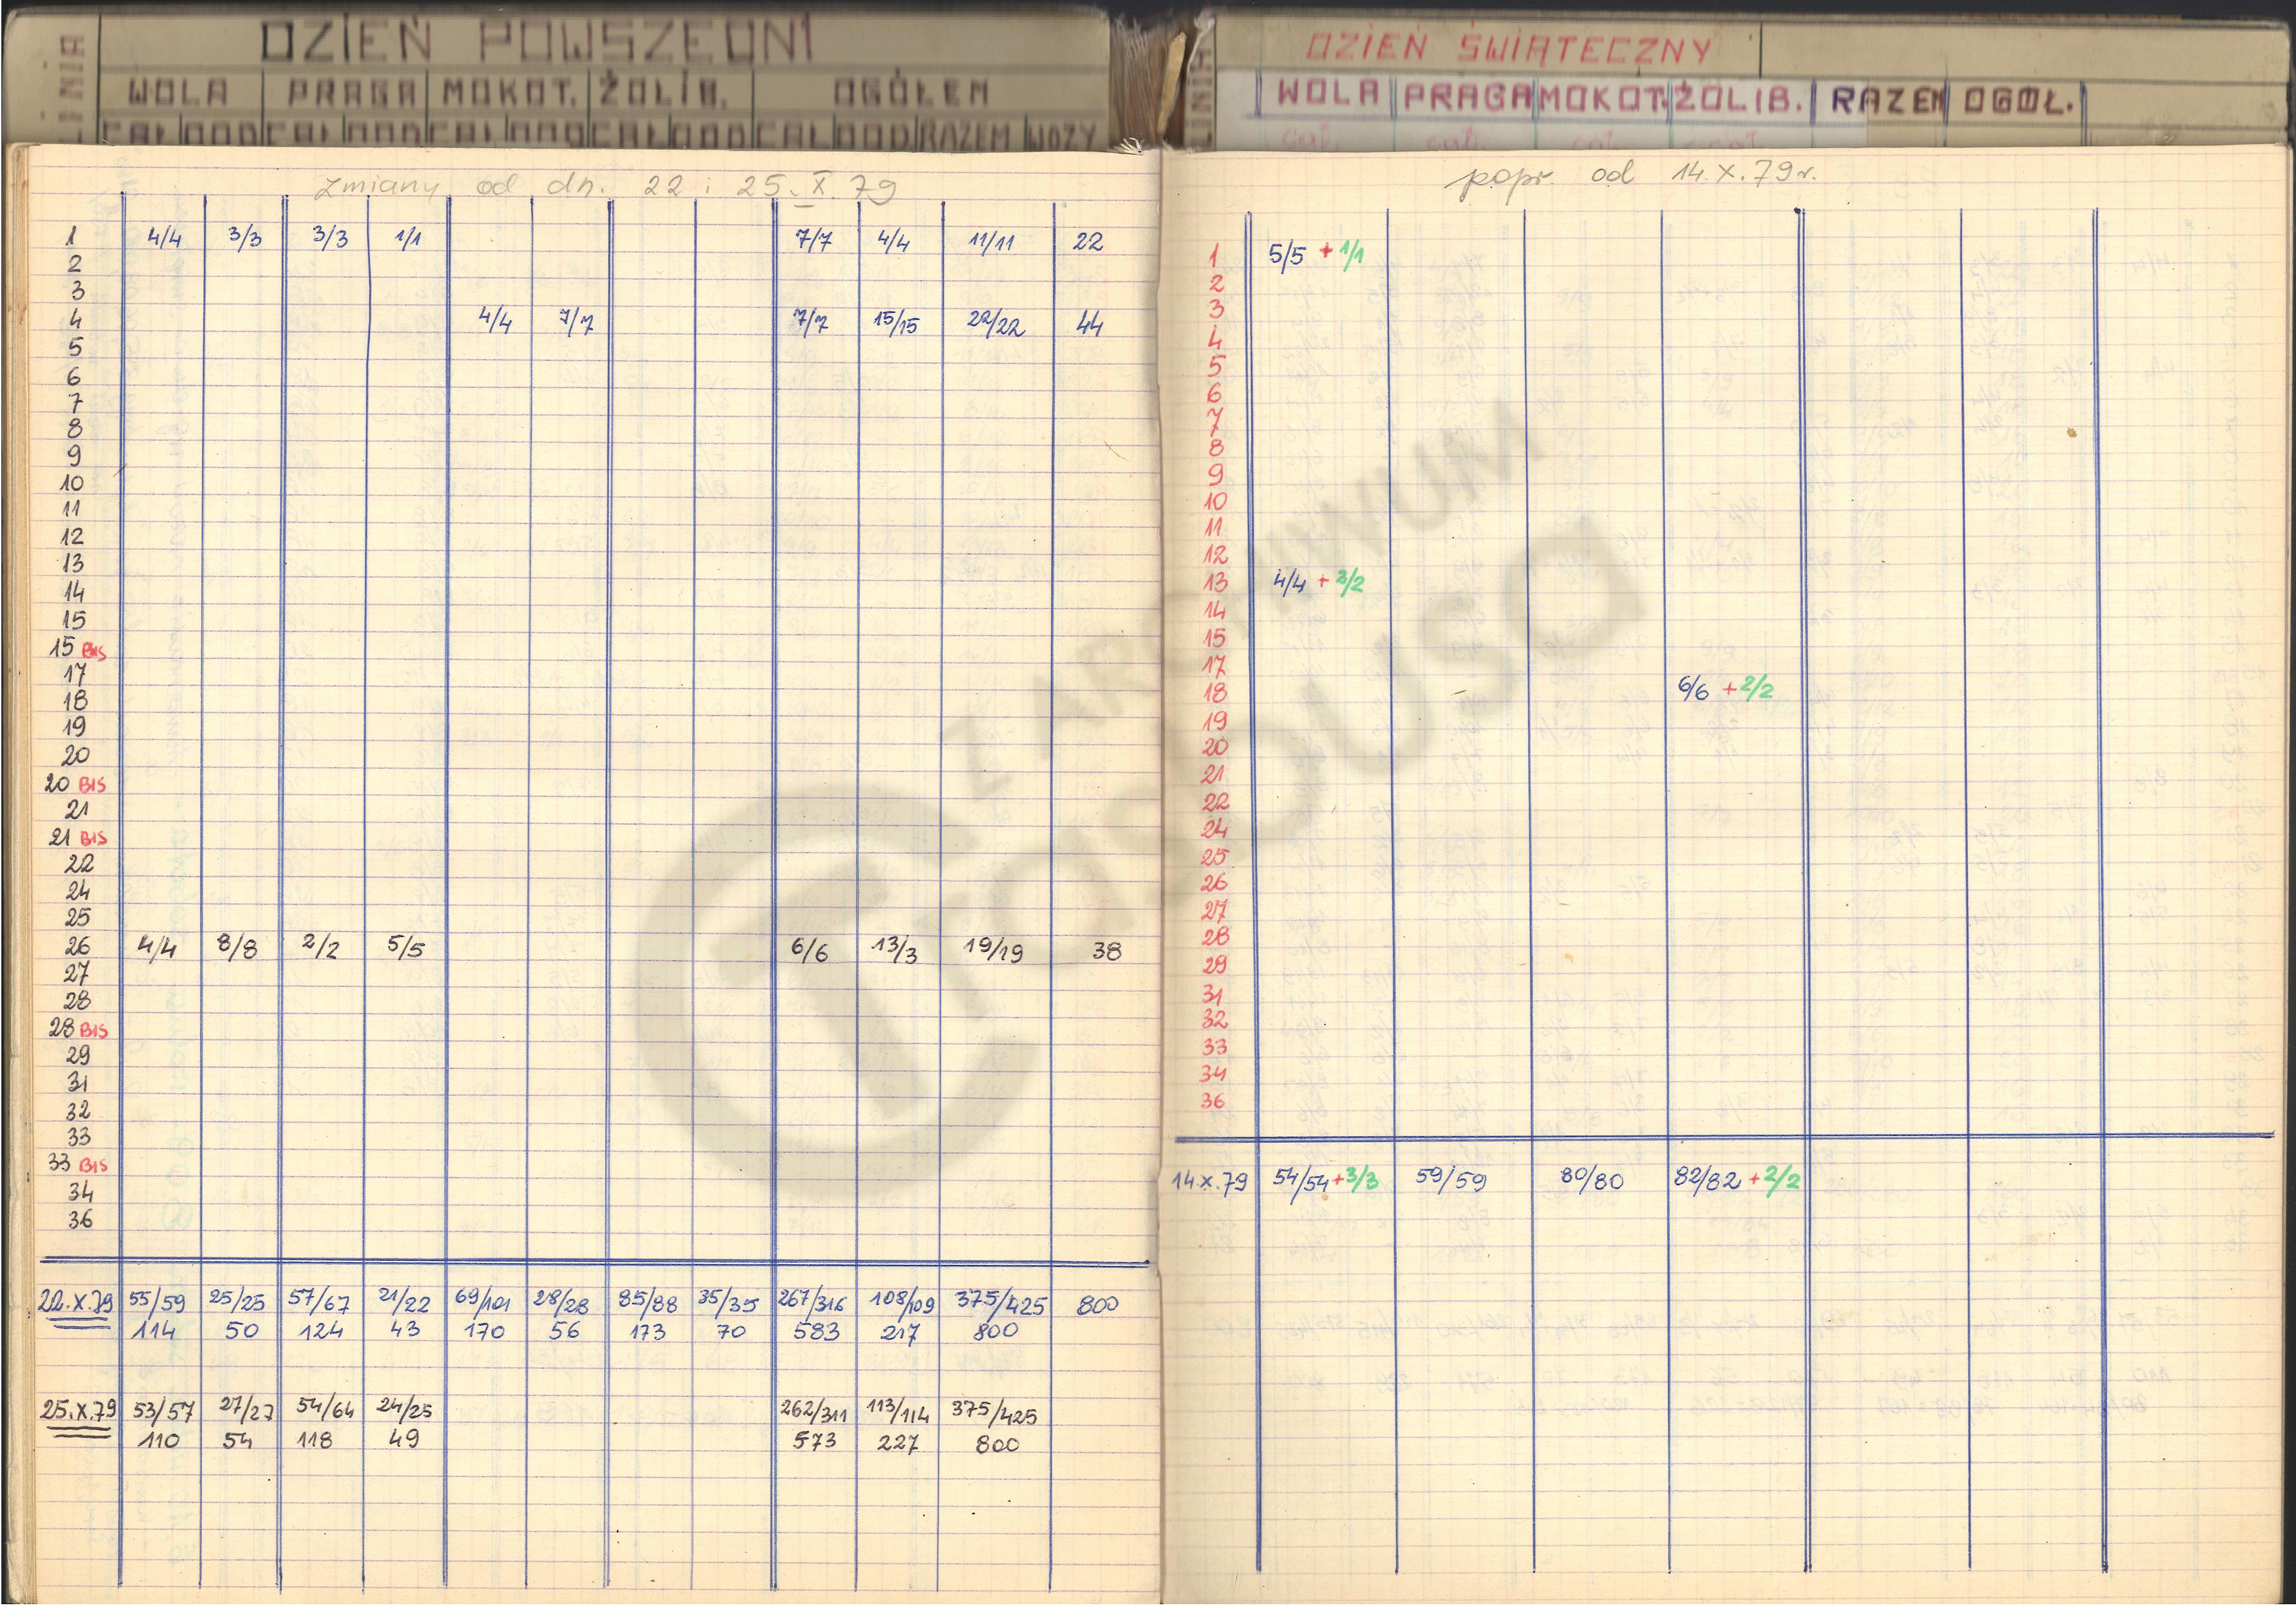 DZIEŃ POWSZEDNI
LINIA WOLA PRAGA MOKOT. ŻOLIB. OGÓŁEM
CAŁ DOD CAŁ DOD CAŁ DOD CAŁ DOD CAŁ DOD RAZEM WOZY
zmiany od dn. 22 i 25.X.79
1 4/4 3/3 3/3 1/1 7/7 4/4 11/11 22
2
3
4 4/4 7/7 7/7 15/15 22/22 44
5
6
7
8
9
10
11
12
13
14
15
15 BIS
17
18
19
20
20 BIS
21
21 BIS
22
24
25
26 4/4 8/8 2/2 5/5 6/6 13/3 19/19 38
27
28
28 BIS
29
31
32
33
33 BIS
34
36
22.X.79 55/59 25/25 57/67 21/22 69/101 28/28 85/88 35/35 267/316 108/109 375/425 800
114 50 124 43 170 56 173 70 583 217 800
25.X.79 53/57 27/27 54/64 24/25 262/311 113/114 375/425
110 54 118 49 573 227 800
DZIEŃ ŚWIĄTECZNY
LINIA WOLA PRAGA MOKOT. ŻOLIB. RAZEM OGÓŁ.
cał. cał. cał. cał.
popr. od 14.X.79r.
1 5/5 + 1/1
2
3
4
5
6
7
8
9
10
11
12
13 4/4 + 2/2
14
15
17
18 6/6 + 2/2
19
20
21
22
24
25
26
27
28
29
31
32
33
34
36
14.X.79 54/54 + 3/3 59/59 80/80 82/82 + 2/2
Z ARCHIWUM
Trasbusa